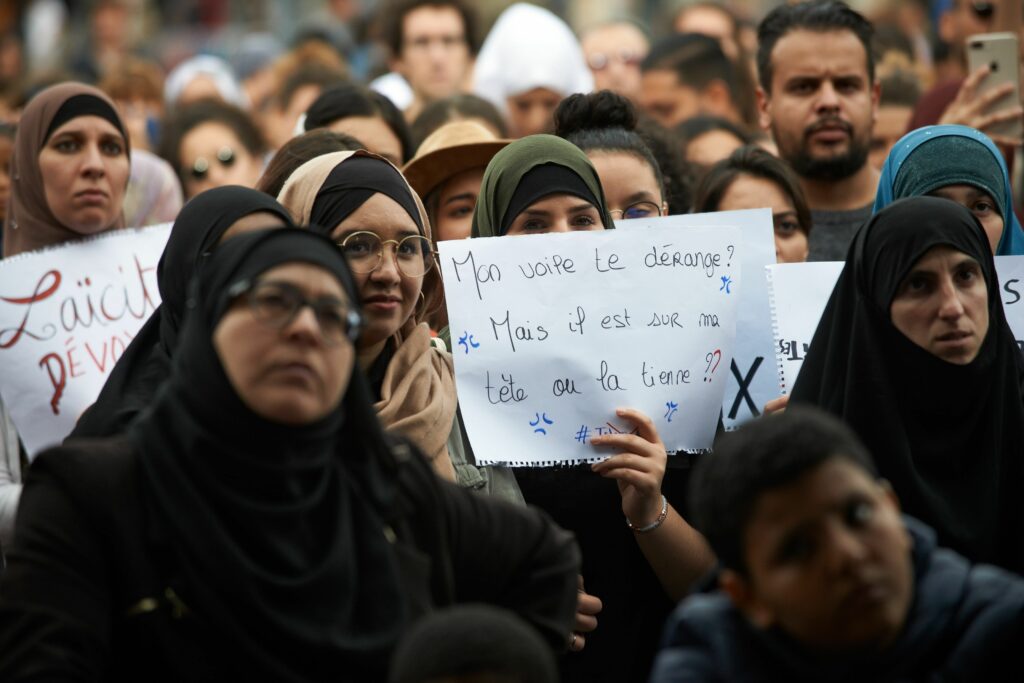 Laïcit
DÉVO
Mon voile te dérange?
Mais il est sur ma
tête ou la tienne ??
X